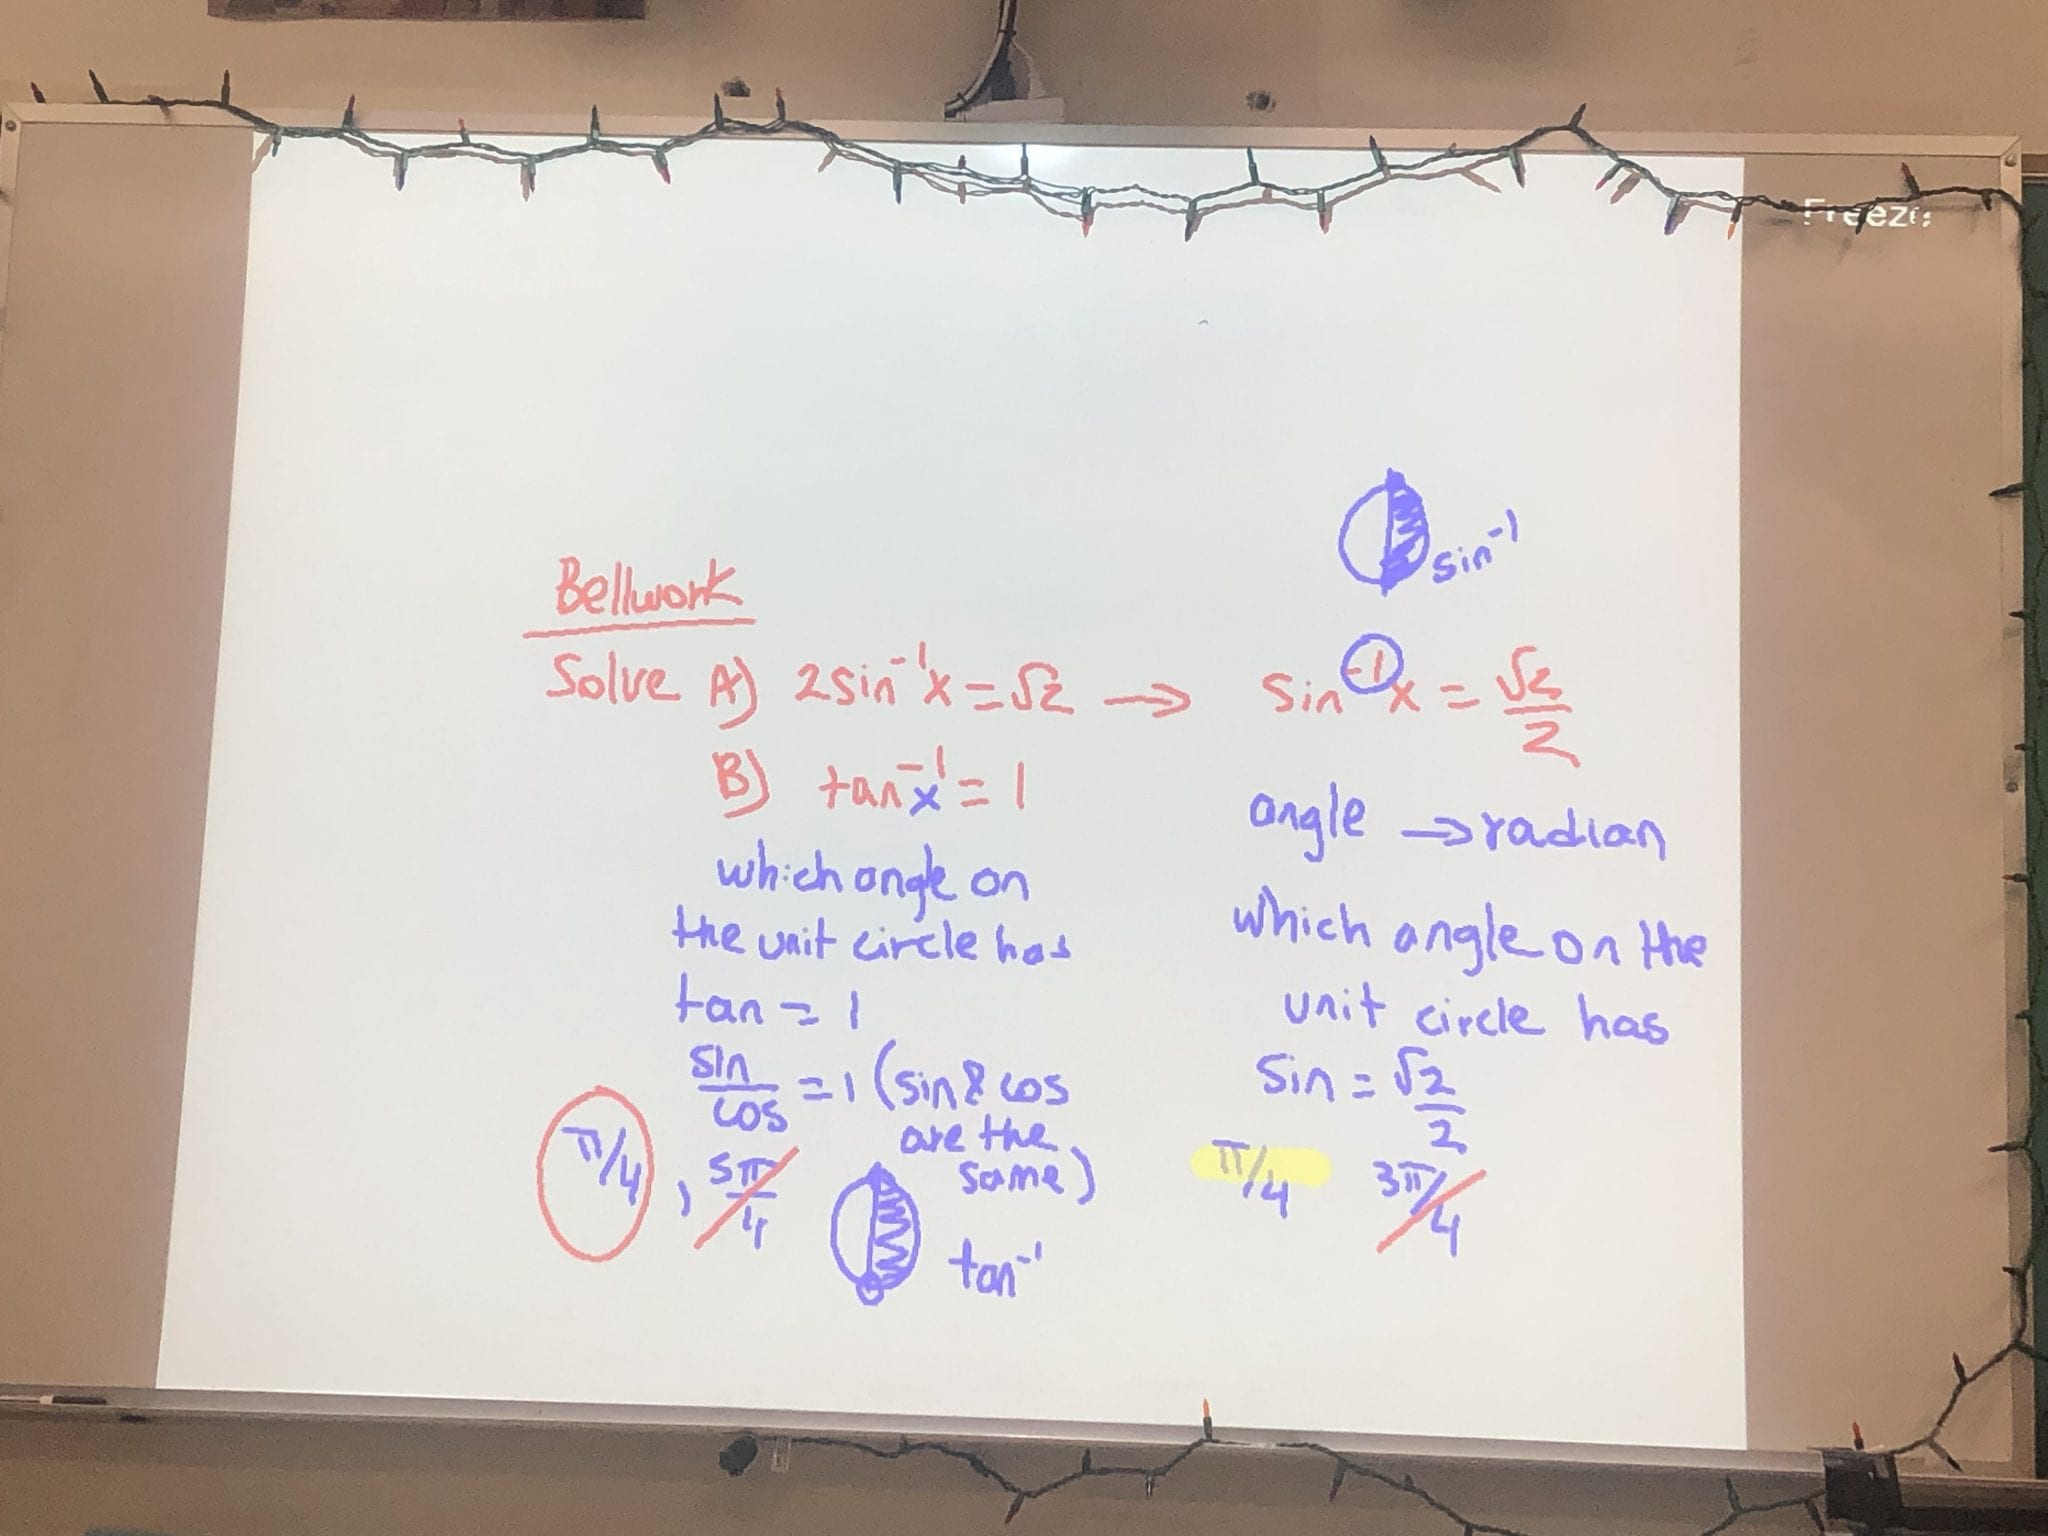 Freeze
sin⁻¹
Bellwork
Solve A) 2sin⁻¹x = √2 → sin⁻¹x = √2/2
B) tan⁻¹x = 1
which angle on
the unit circle has
tan = 1
sin/cos = 1 (sin & cos
are the
same)
π/4 , 5π/4
tan⁻¹
angle → radian
which angle on the
unit circle has
sin = √2/2
π/4 3π/4